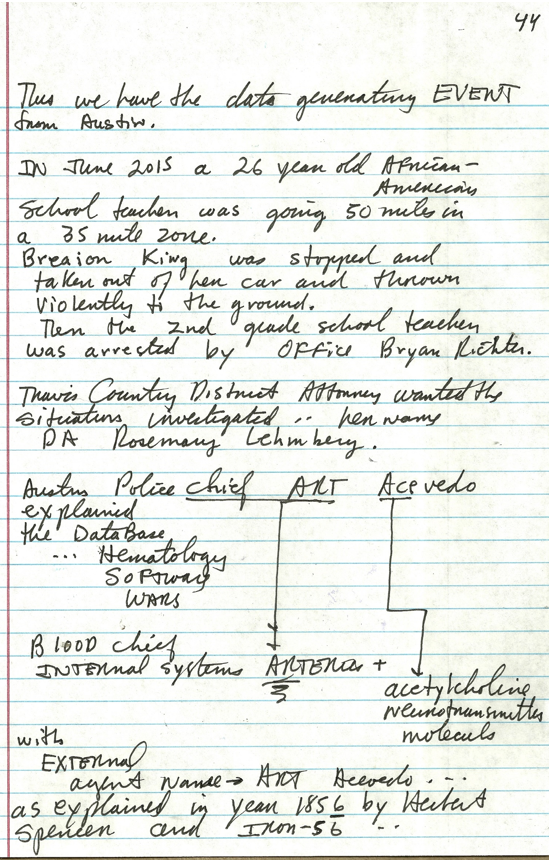 44
Thus we have the data generating EVENT
from Austin.
IN June 2015 a 26 year old African-
American
School teacher was going 50 miles in
a 35 mile zone.
Breaion King was stopped and
taken out of her car and thrown
violently to the ground.
Then the 2nd grade school teacher
was arrested by OFFice Bryan Richter.
Travis Country District Attorney wanted the
situation investigated .. her name
DA Rosemary Lehmberg.
Austin Police chief ART Acevedo
explained
the DataBase
... Hematology
SoFtware
WARS
Blood chief
INTERNAL systems ARTERIES +
acetylcholine
neurotransmitter
molecule
with
EXTERNAL
agent name → ART Acevedo ...
as explained in year 1856 by Herbert
Spencer and Iron-56 ..